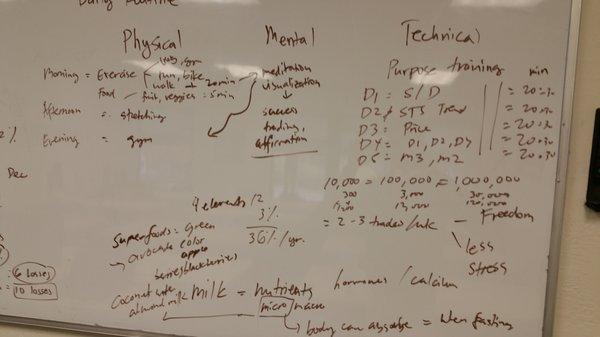 Daily Routine
Physical Mental Technical
Morning = Exercise run, bike walk 20min
Food fruit, veggies = 5min
Afternoon = stretching
Evening = gym
meditation
visualization
success
trading,
affirmation
Purpose training min
D1 = S/D = 20.30
D2 STS Trend = 20.30
D3 = Price = 20.30
D4 = D1, D2, D4 = 20.30
D5 = M3, M2 = 20.30
Dec
10,000 = 100,000 = 1,000,000
300 3,000 30,000
12,000 120,000
= 2-3 trades/wk - Freedom
less
stress
4 elements 12
3%
36%/yr.
Superfoods = Green
avocado color
apple
berries blackberries
Coconut
almond milk milk = nutrients hormones / calcium
micro macro
body can absorbe = when fasting
6 losses
= 10 losses